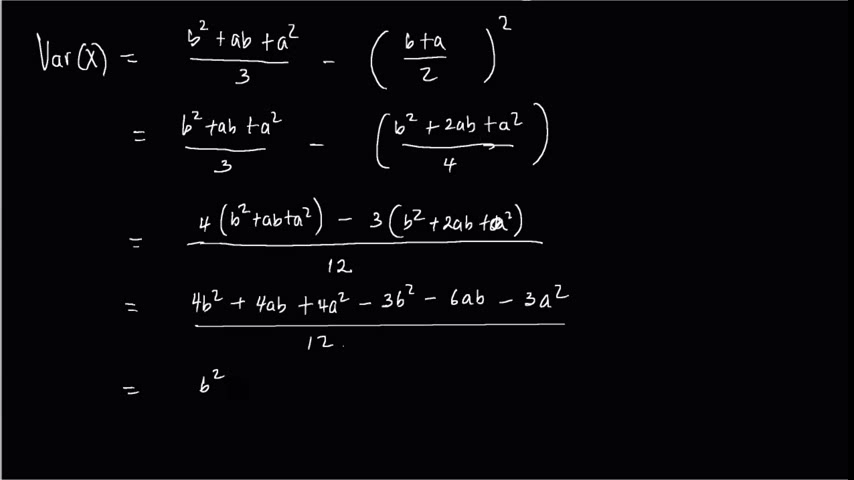 Var(X) = \frac{b^2 + ab + a^2}{3} - \left( \frac{b+a}{2} \right)^2
= \frac{b^2 + ab + a^2}{3} - \left( \frac{b^2 + 2ab + a^2}{4} \right)
= \frac{4(b^2 + ab + a^2) - 3(b^2 + 2ab + a^2)}{12}
= \frac{4b^2 + 4ab + 4a^2 - 3b^2 - 6ab - 3a^2}{12}
= b^2